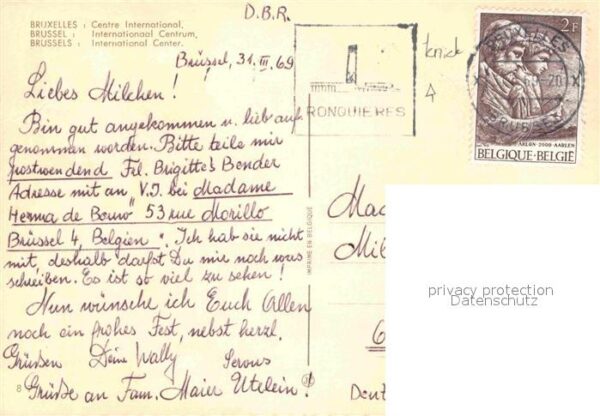 D.B.R.
BRUXELLES : Centre International,
BRUSSEL : Internationaal Centrum,
BRUSSELS : International Center.
Brüssel, 31. III. 69
Liebes Milchen!
Bin gut angekommen u. lieb auf-
genommen worden. Bitte teile mir
postwendend Frl. Brigitte's Bender
Adresse mit an V.J. bei Madame
Herma de Bouw" 53 rue Morillo
Brüssel 4, Belgien". Ich hab sie nicht
mit, deshalb darfst Du mir noch was
schreiben. Es ist so viel zu sehen!
Nun wünsche ich Euch Allen
noch ein frohes Fest, nebst herzl.
Grüßen Deine Wally Servus
Grüße an Fam. Maier Utelein!
8
IMPRIMÉ EN BELGIQUE
RONQUIERES
4
2F
BRUXELLES
BRUSSEL
X
20
X
ARLON-2000-AARLEN
BELGIQUE·BELGIË
Mad
Mil
6
Deut
privacy protection
Datenschutz